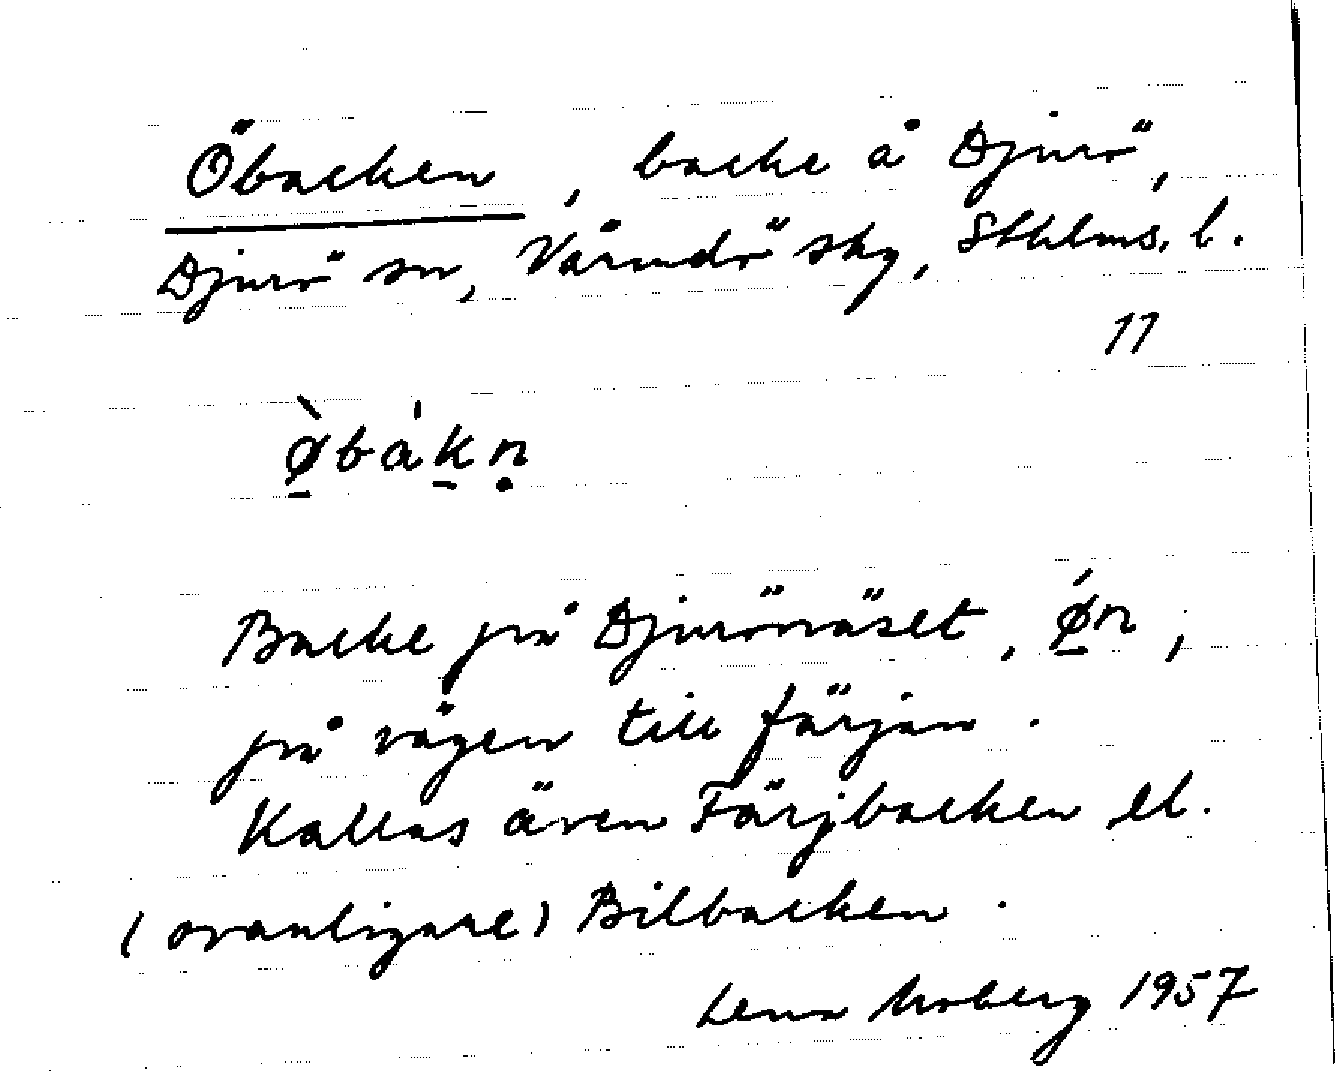 Öbacken, backe å Djurö,
Djurö sn, Värmdö skg, Sthlms. l.
11
ø̱̀bák̠ṇ
Backe på Djurönäset, ǿ̱n,
på vägen till färjan.
Kallas även Färjbacken el.
(ovanligare) Bilbacken.
Lena Moberg 1957